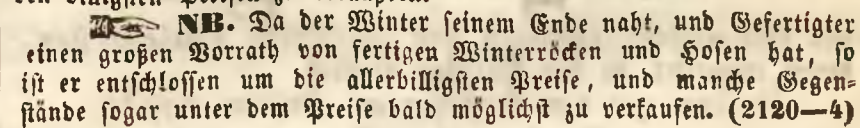 ☞ NB. Da der Winter seinem Ende naht, und Gefertigter
einen großen Vorrath von fertigen Winterröcken und Hosen hat, so
ist er entschlossen um die allerbilligsten Preise, und manche Gegen=
stände sogar unter dem Preise bald möglichst zu verkaufen. (2120—4)